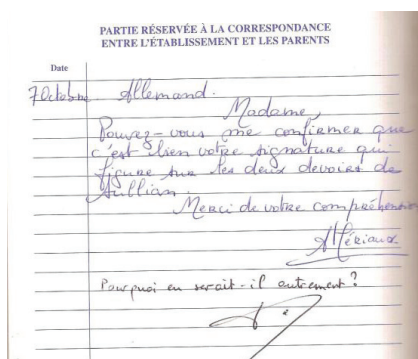 PARTIE RÉSERVÉE À LA CORRESPONDANCE
ENTRE L'ÉTABLISSEMENT ET LES PARENTS
Date
7 Octobre Allemand.
Madame,
Pouvez-vous me confirmer que
c'est bien votre signature qui
figure sur les deux devoirs de
Merci de votre compréhension
Mériaux
Pourquoi en serait-il autrement ?